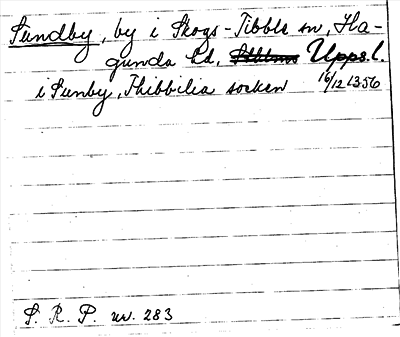 Sundby, by i Skogs-Tibble sn, Ha-
gunda hd, Sthlms Upps. l.
i Sunby, Thibbilia socken 16/12 1356
S. R. P. nr. 283